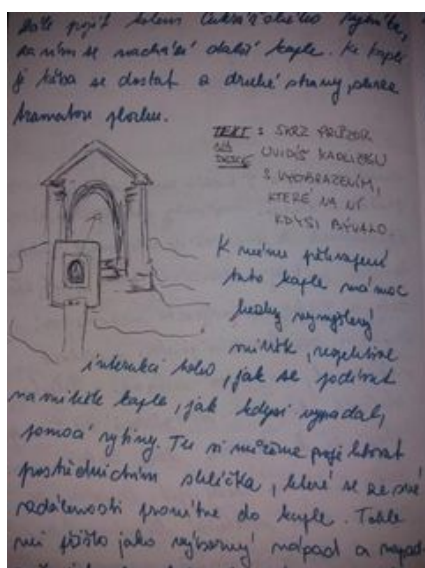 dále pojít kolem Cukrářského rybníka,
za ním se nachází další kaple. Ke kapli
je třeba se dostat z druhé strany, skrze
travnatou plochu.
TEXT : SKRZ PRŮZOR
NA UVIDÍŠ KAPLIČKU
DESCE S VYOBRAZENÍM,
KTERÉ NA NÍ
KDYSI BÝVALO.
K mému překvapení
tato kaple má moc
hezky vymyšlený
interakci toho, jak se podívat
na vnitřek kaple, jak kdysi vypadal,
pomocí rytiny. Tu si můžeme projektovat
prostřednictvím sklíčka, které se ze své
vzdálenosti promítne do kaple. Tohle
mi přišlo jako výborný nápad a